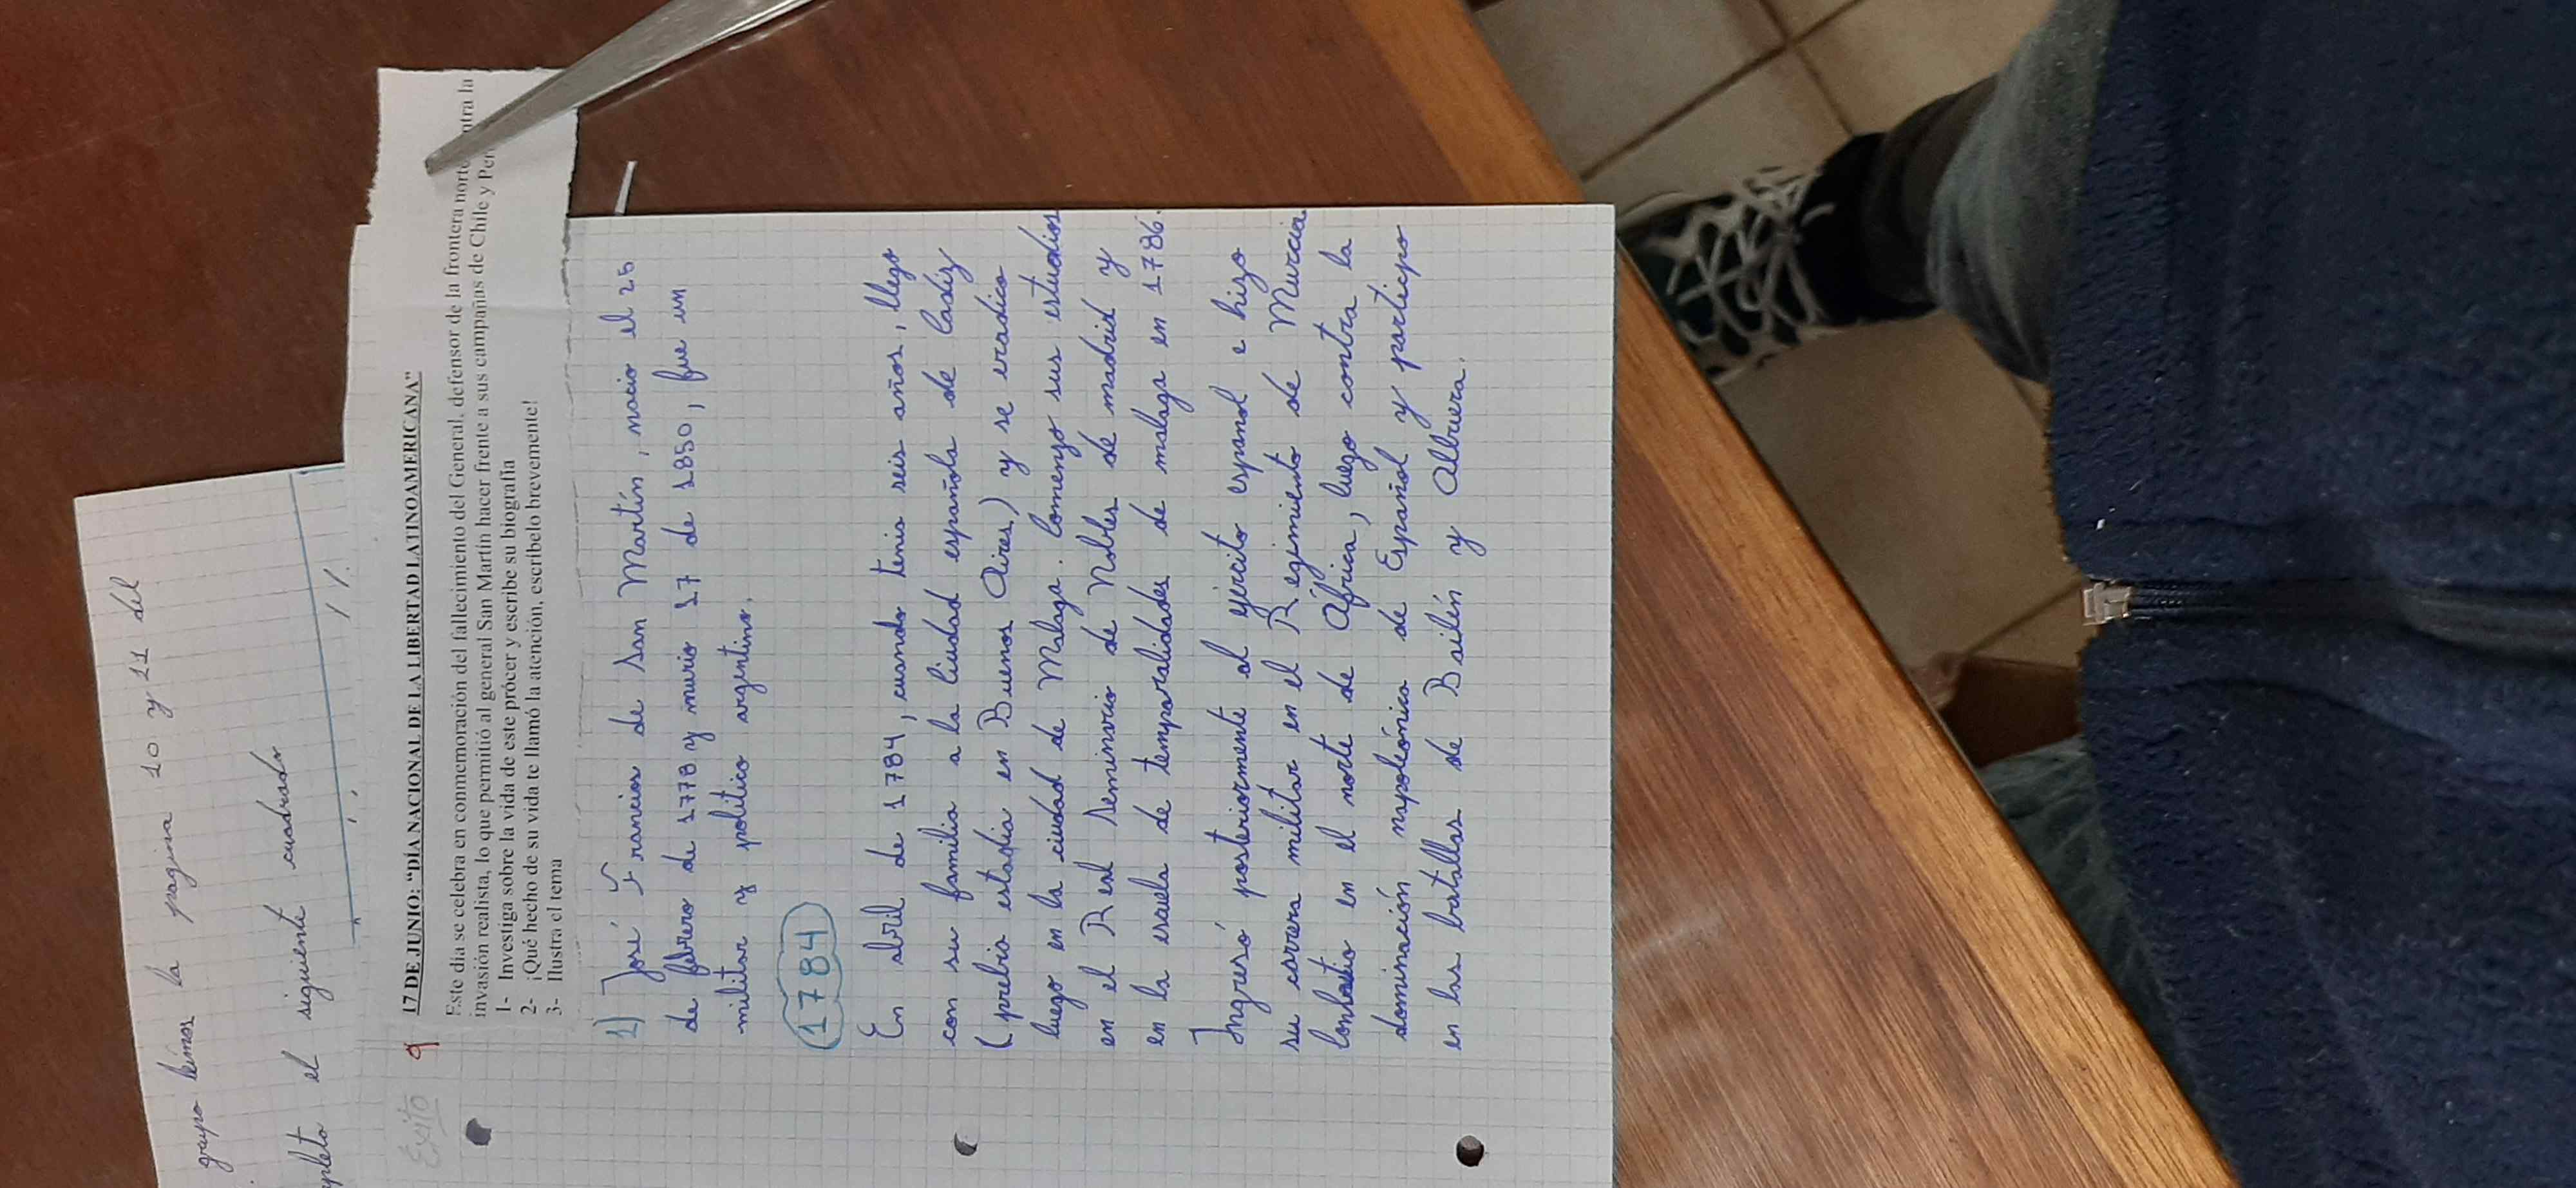 grupo leímos la pagina 10 y 11 del
el siguiente cuadrado
Exito
9
17 DE JUNIO: “DÍA NACIONAL DE LA LIBERTAD LATINOAMERICANA”
Este día se celebra en conmemoración del fallecimiento del General, defensor de la frontera norte ntra la
invasión realista, lo que permitió al general San Martín hacer frente a sus campañas de Chile y Per
1- Investiga sobre la vida de este prócer y escribe su biografía
2- ¡Qué hecho de su vida te llamó la atención, escribelo brevemente!
3- Ilustra el tema
1) José Francisco de San Martín, nacio el 25
de febrero de 1778 y murio 17 de 1850, fue un
militar y politico argentino.
1784
En abril de 1784, cuando tenia seis años, llego
con su familia a la Ciudad española de Cadiz
(prebia estadia en Buenos Aires) y se eradico
luego en la ciudad de Malaga. Comenzo sus estudios
en el Real Seminario de Nobles de madrid y
en la esuela de temporalidades de malaga en 1786.
Ingresó posteriormente al ejército español e hizo
su carrera militar en el Regimiento de Murcia
Conbatio en el norte de África, luego contra la
dominación napoleónica de Español y participo
en las batallas de Bailén y Albuera.